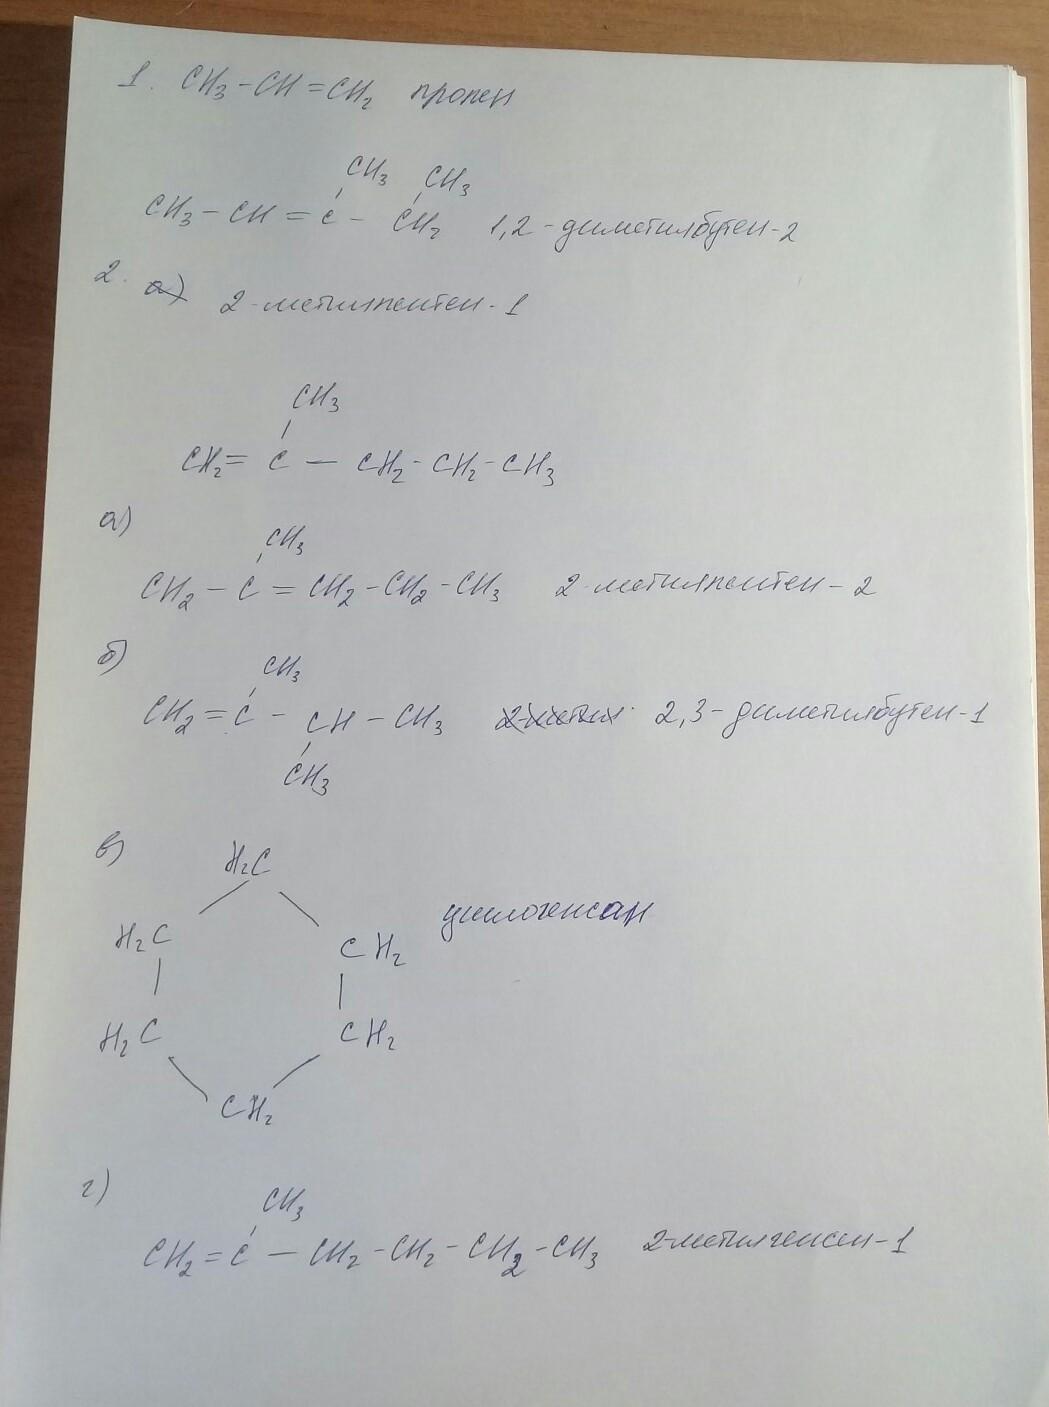 1. CH₃-CH=CH₂ пропен
CH₃ CH₃
CH₃-CH=C-CH₂ 1,2-диметилбутен-2
2. а)
2-метилпентен-1
CH₃
CH₂=C-CH₂-CH₂-CH₃
а)
CH₃
CH₂-C=CH₂-CH₂-CH₃ 2-метилпентен-2
б)
CH₃
CH₂=C-CH-CH₃ 2-метил 2,3-диметилбутен-1
CH₃
в)
H₂C
H₂C CH₂
циклогексан
H₂C CH₂
CH₂
г)
CH₃
CH₂=C-CH₂-CH₂-CH₂-CH₃ 2-метилгексен-1